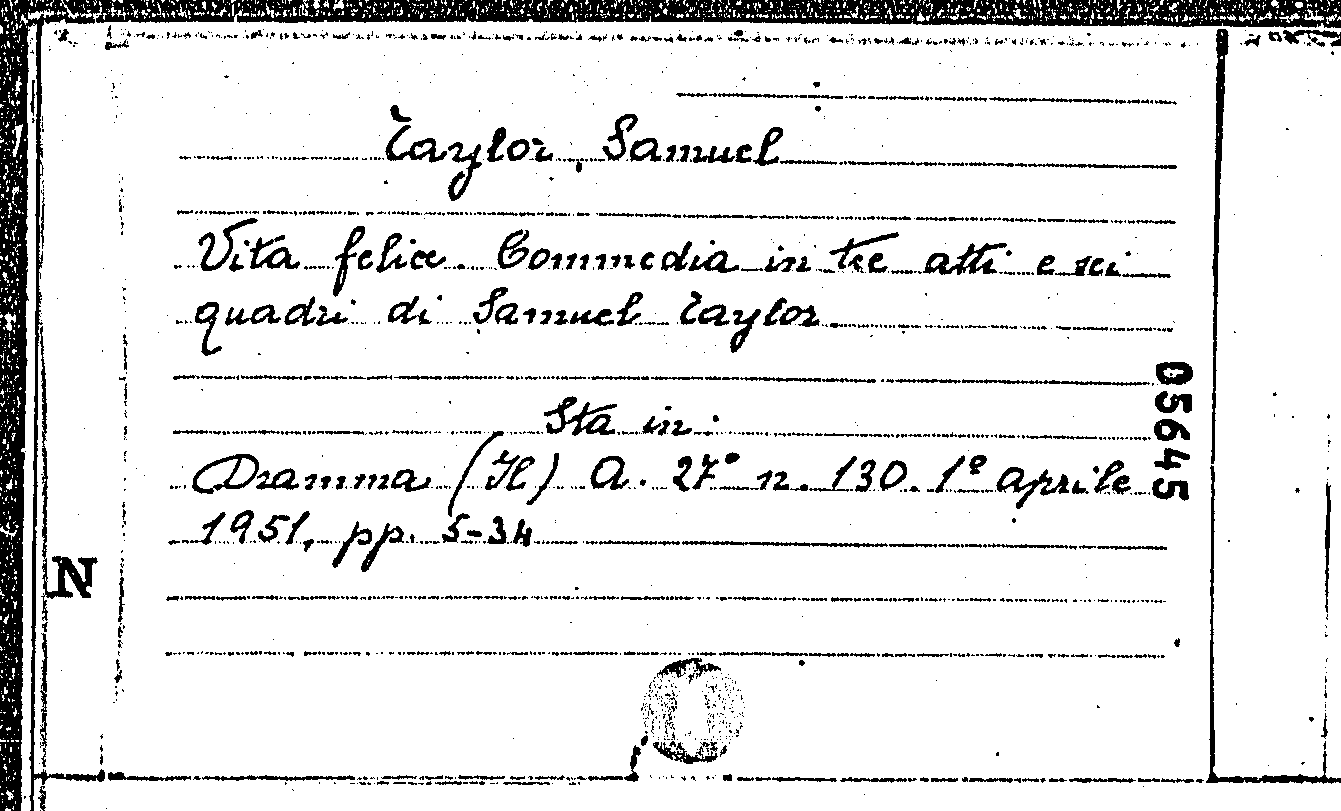 Taylor, Samuel
Vita felice. Commedia in tre atti e sei
quadri di Samuel Taylor
Sta in:
Dramma (Il) A. 27° n. 130. 1º aprile
1951, pp. 5-34
05645
N